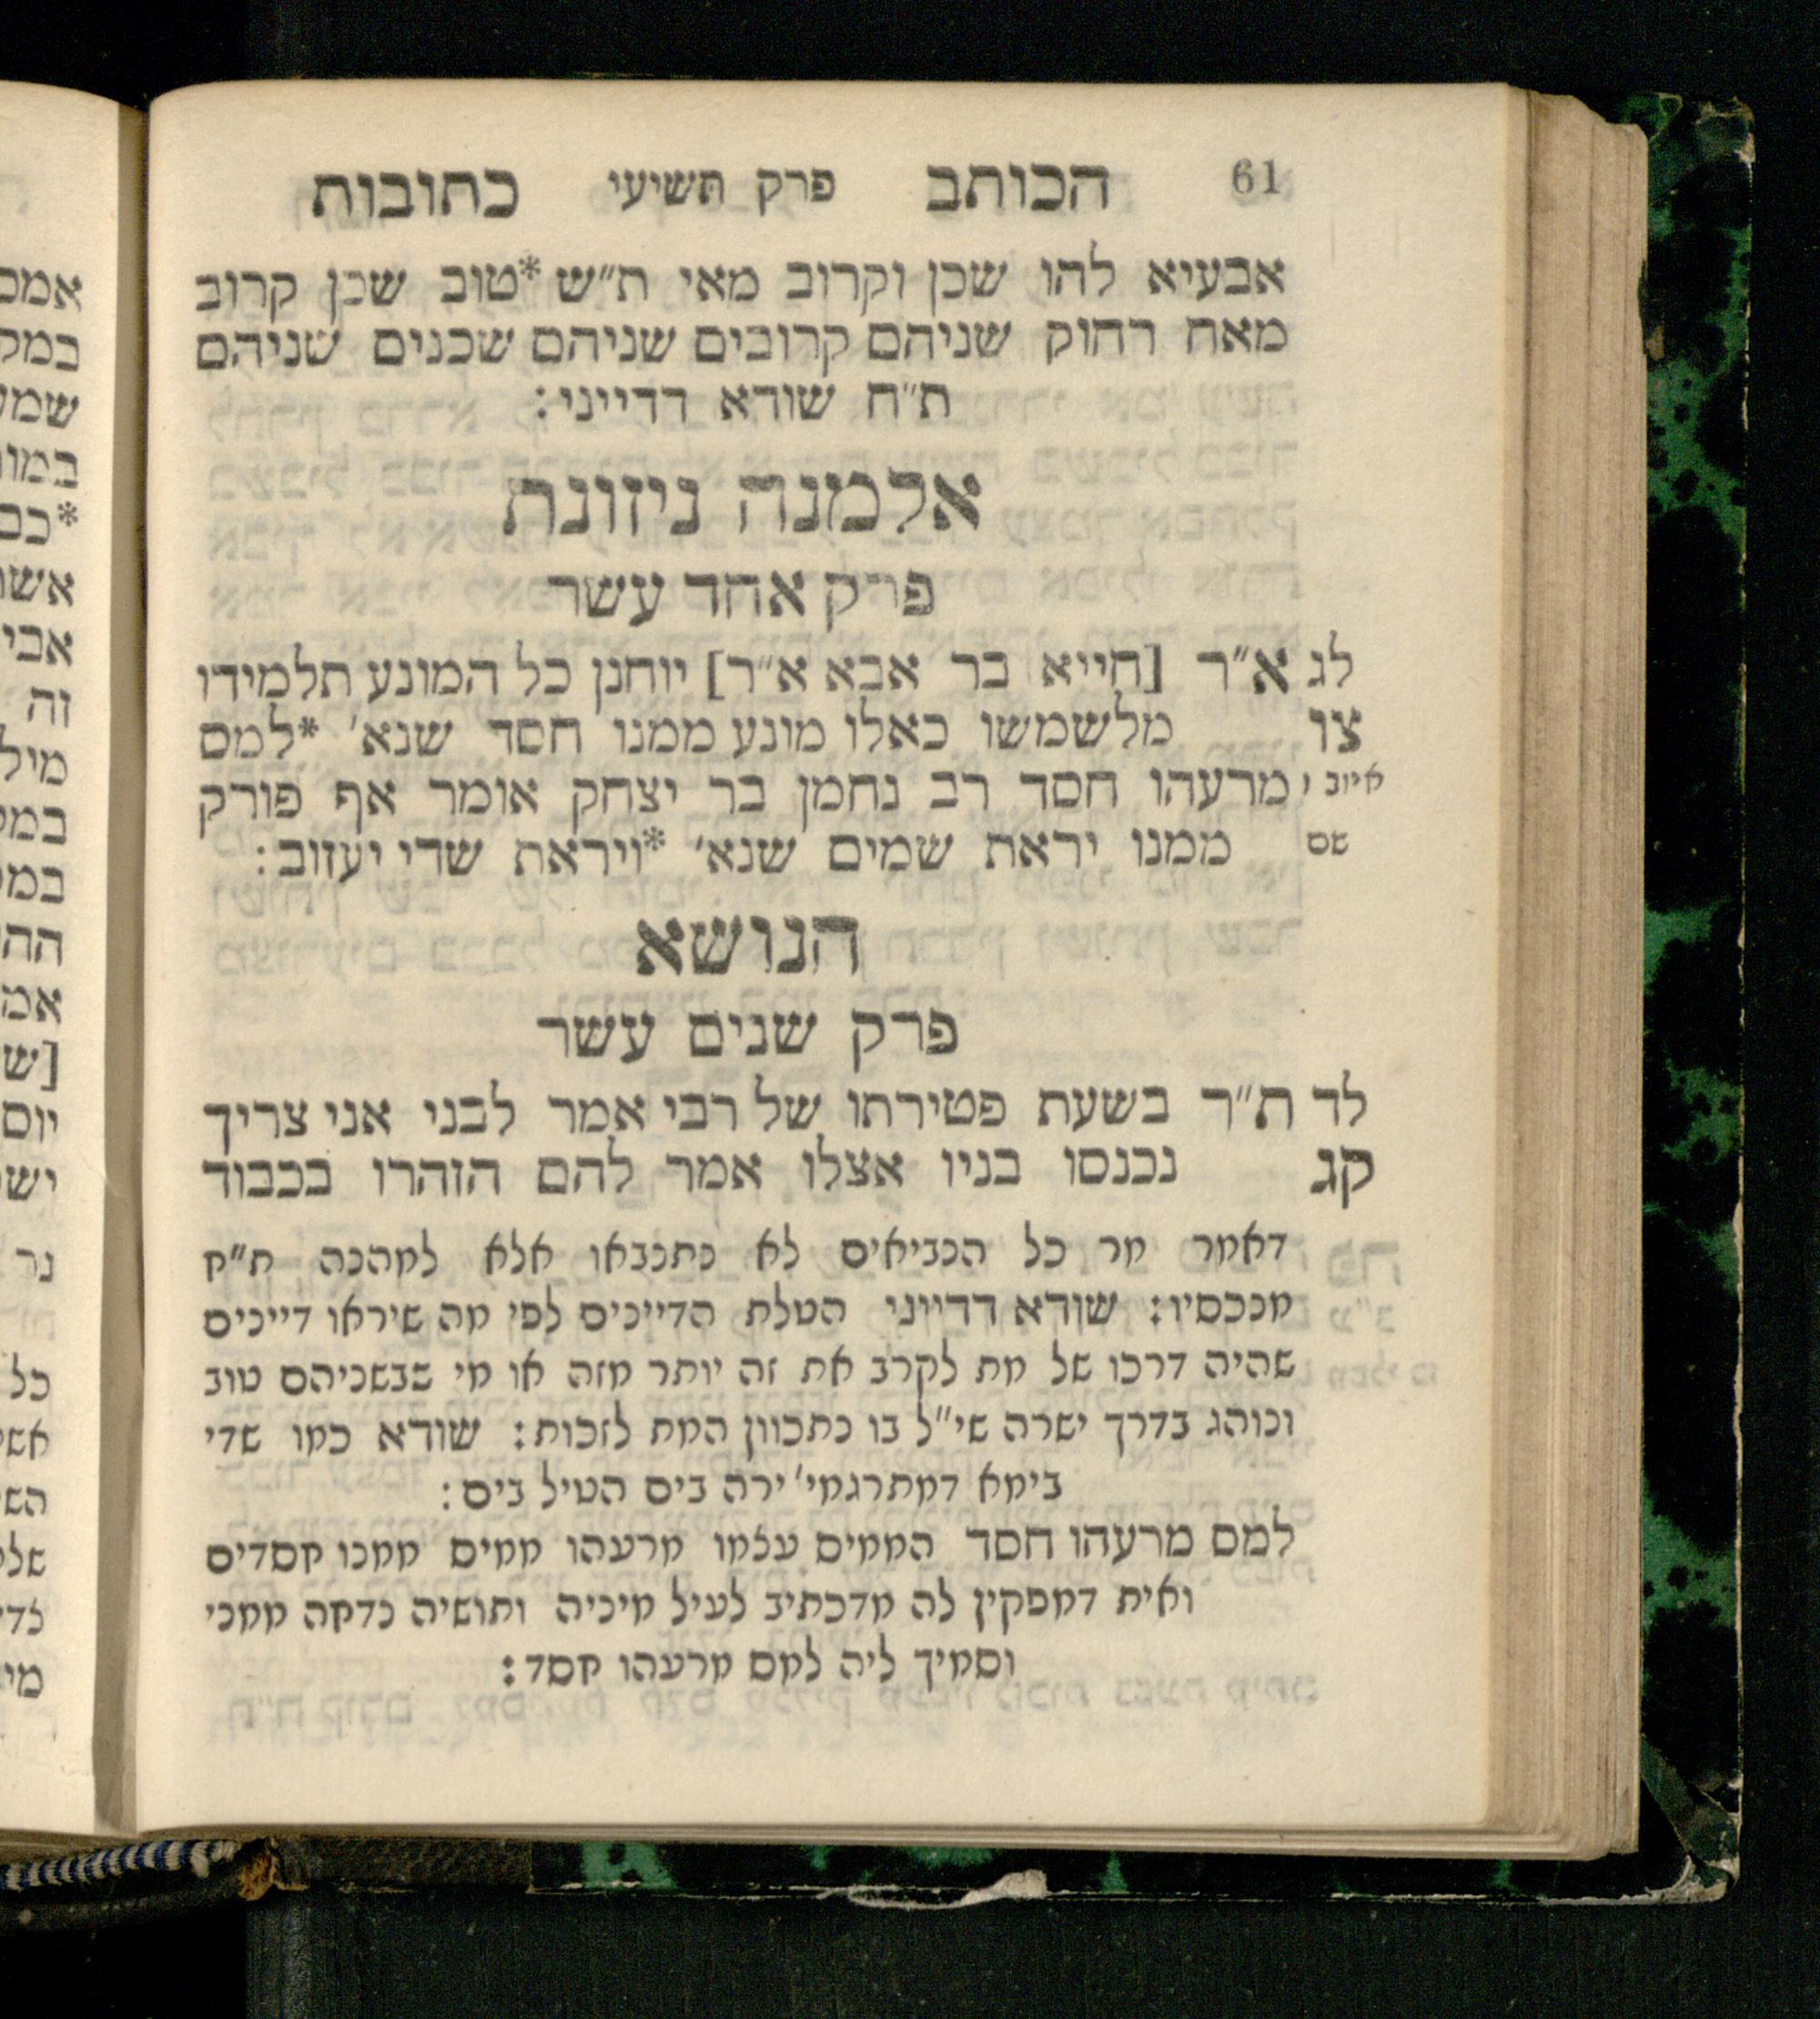 61 הכותב פרק תשיעי כתובות
אבעיא להו שכן וקרוב מאי ת״ש *טוב שכן קרוב
מאח רחוק שניהם קרובים שניהם שכנים שניהם
ת״ח שודא דדייני:
אלמנה ניזונת
פרק אחד עשר
לג א״ר [חייא בר אבא א״ר] יוחנן כל המונע תלמידו
צו מלשמשו כאלו מונע ממנו חסד שנא׳ *למס
איוב ו מרעהו חסד רב נחמן בר יצחק אומר אף פורק
שם ממנו יראת שמים שנא׳ *ויראת שדי יעזוב:
הנושא
פרק שנים עשר
לד ת״ר בשעת פטירתו של רבי אמר לבני אני צריך
קג נכנסו בניו אצלו אמר להם הזהרו בכבוד
דאמר מר כל הנביאים לא נתנבאו אלא למהנה ת״ח
מנכסיו: שודא דדייני הטלת הדיינים לפי מה שיראו דיינים
שהיה דרכו של מת לקרב את זה יותר מזה או מי שבשניהם טוב
ונוהג בדרך ישרה שי״ל בו נתכוון המת לזכות: שודא כמו שדי
בימא דמתרגמי׳ ירה בים הטיל בים:
למס מרעהו חסד הממים עצמו מרעהו ממים ממנו חסדים
ואית דמפקין לה מדכתיב לעיל מיניה ותושיה נדחה ממני
וסמיך ליה למס מרעהו חסד: